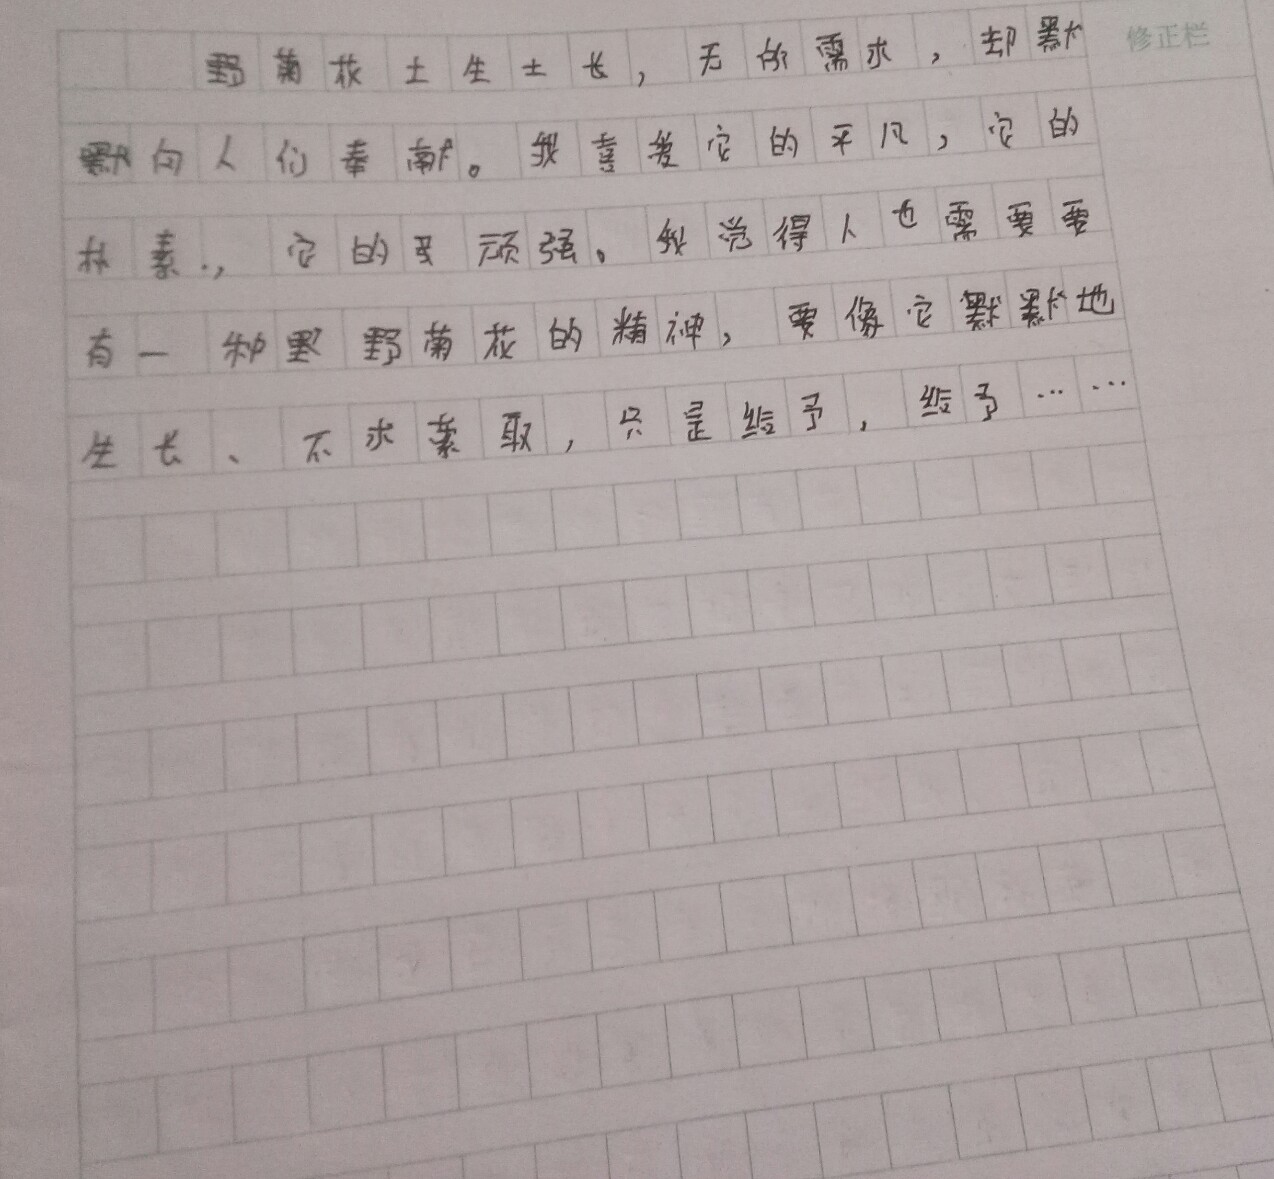 野菊花土生土长，无所需求，却默
修正栏
默向人们奉献。我喜爱它的平凡，它的
朴素.，它的 顽强。我觉得人也需要要
有一种野野菊花的精神，要像它默默地
生长、不求索取，只是给予，给予……